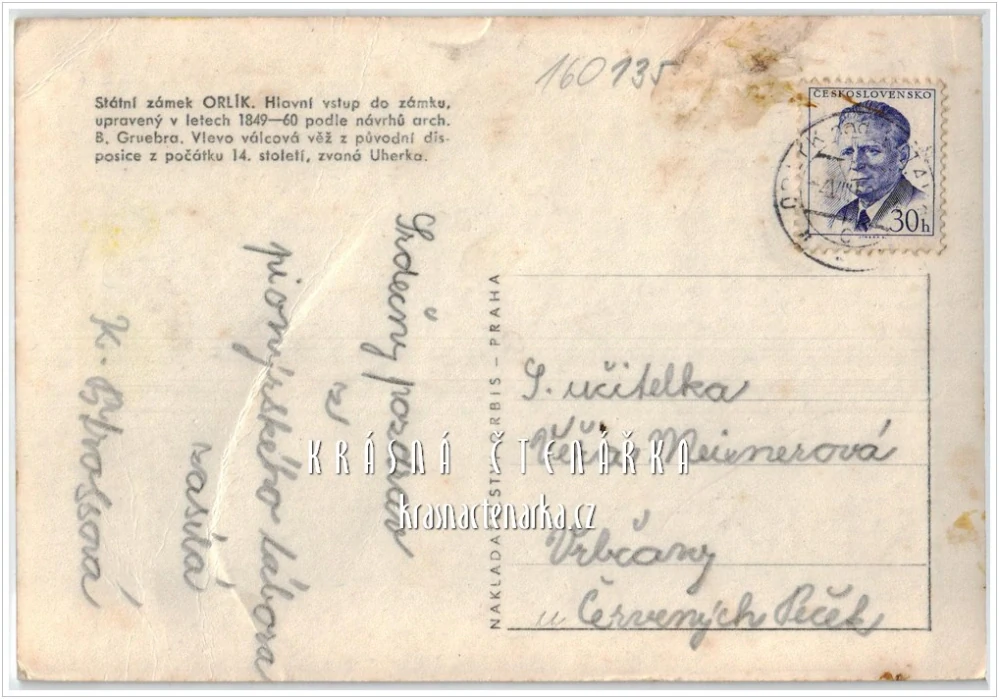 160135
Státní zámek ORLÍK. Hlavní vstup do zámku,
upravený v letech 1849—60 podle návrhů arch.
B. Gruebra. Vlevo válcová věž z původní dis-
posice z počátku 14. století, zvaná Uherka.
ČESKOSLOVENSKO
30h
Srdečný pozdrav
z
pionýrského tábora
zasílá
K.
NAKLADATELSTVÍ ORBIS — PRAHA
S. učitelka
Věra Meixnerová
Vrbčany
u Červených Peček
KRÁSNÁ ČTENÁŘKA
krasnactenarka.cz